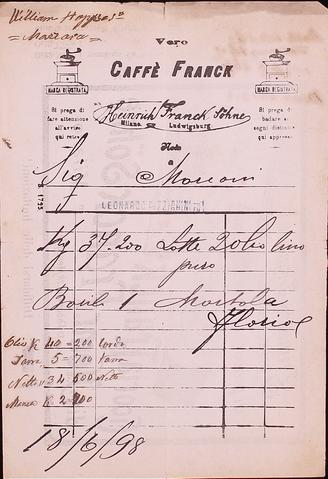 William Hopps
= Mazzara =
Vero
CAFFÈ FRANCK
MARCA REGISTRATA
MARCA REGISTRATA
Si prega di
fare attenzione
all'avviso
qui retro
Heinrich Franck Söhne
Milano. Ludwigsburg
Si prega di
badare ai
segni distintivi
qui appresso
Nota
a
Sig Marconi
Kg 37.200 Lotte 20 lino
puro
1
Florio
Olio K 40 = 200 Lordo
Tara 5 = 700 Tara
Netto 34 500 Netto
Manca K 2
18/6/98